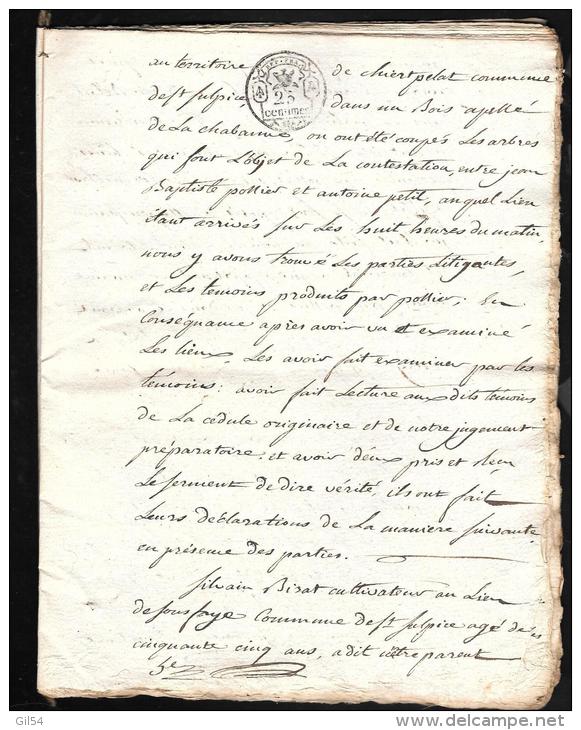 au territoire de chiert pelat commune
REP. FRA.
25
centimes
de st sulpice dans un Bois apellé
de La chabanne, ou ont été coupés Les arbres
qui font L'objet de La contestation, entre jean
Baptiste pollier et antoine petit, auquel Lieu
étant arrivés sur Les huit heures du matin,
nous y avons trouvé Les parties Litigantes,
et Les temoins produits par pollier; En
Conséquance après avoir vu et examiné
Les lieux. Les avoir fait examiner par les
témoins: avoir fait Lecture aux dits témoins
de La cédule originaire et de notre jugement
préparatoire: et avoir deux pris et reçu
Le serment de dire vérité, ils ont fait
Leurs déclarations de La maniere suivante,
en présence des parties.
Silvain Birat cultivateur au Lieu
de sousfaye Commune de st sulpice agé de
cinquante cinq ans, a dit être parent
Gil54
www.delcampe.net